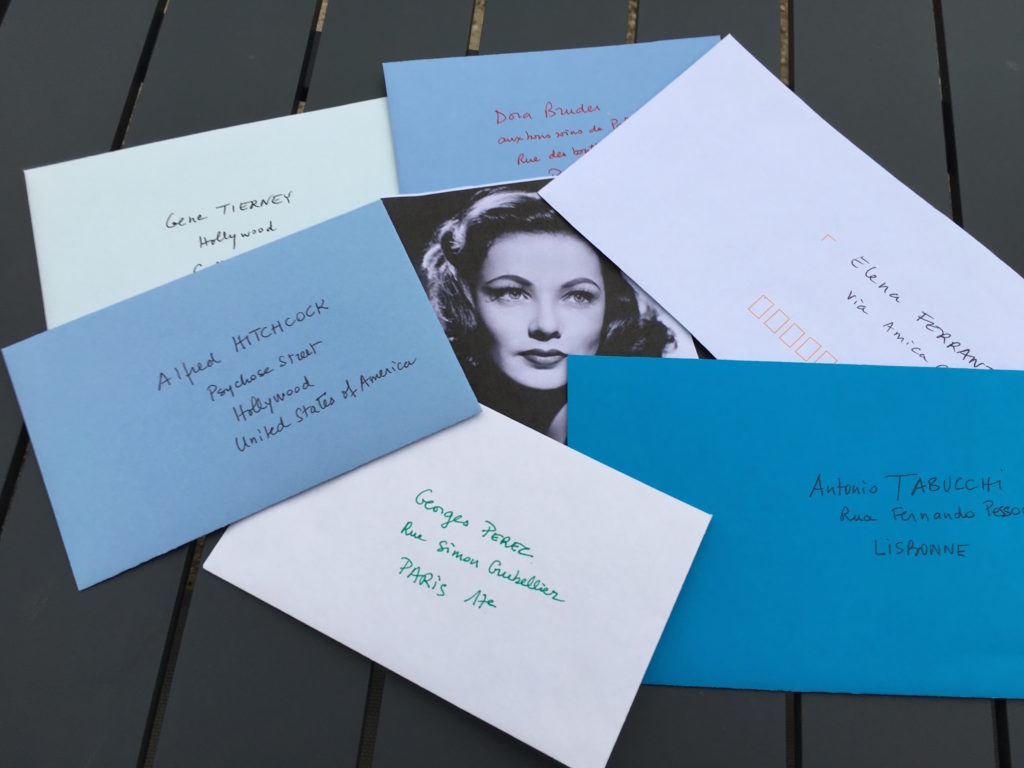 Dora Bruder
aux bons soins de P
Rue des bout
Gene TIERNEY
Hollywood
C
Elena FERRANT
Via Amica
Alfred HITCHCOCK
Psychose Street
Hollywood
United States of America
Antonio TABUCCHI
Rua Fernando Pesso
LISBONNE
Georges PEREC
Rue Simon Crubellier
PARIS 17e